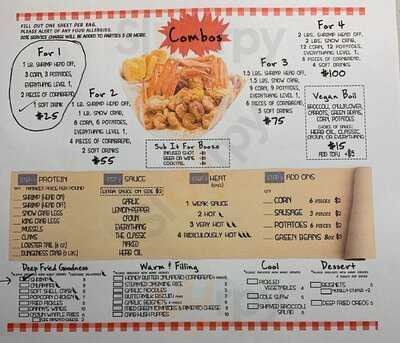 FILL OUT ONE SHEET PER BAG.
PLEASE ALERT OF ANY FOOD ALLERGIES.
20% SERVICE CHARGE WILL BE ADDED TO PARTIES 5 OR MORE.
Combos
For 1
1 LB. SHRIMP HEAD OFF,
3 CORN, 3 POTATOES,
EVERYTHANG LEVEL 1,
2 PIECES OF CORNBREAD,
1 SOFT DRINK
$25
For 2
1 LB. SHRIMP HEAD OFF,
1 LB. SNOW CRAB,
6 CORN, 6 POTATOES,
EVERYTHANG LEVEL 1,
4 PIECES OF CORNBREAD,
2 SOFT DRINKS
$55
Sub It For Booze
INFUSED SHOT
BEER OR WINE
COCKTAIL
For 3
1.5 LBS. SHRIMP HEAD OFF,
1.5 LBS. SNOW CRAB,
9 CORN, 9 POTATOES,
EVERYTHANG LEVEL 1,
6 PIECES OF CORNBREAD,
3 SOFT DRINKS
$75
For 4
2 LBS. SHRIMP HEAD OFF,
2 LBS. SNOW CRAB,
12 CORN, 12 POTATOES,
EVERYTHANG LEVEL 1,
8 PIECES OF CORNBREAD,
4 SOFT DRINKS
$100
Vegan Boil
BROCCOLI, CAULIFLOWER,
CARROTS, GREEN BEANS,
CORN, POTATOES
CHOICE OF SAUCE:
HERB OIL, CLASSIC,
CROUN, OR EVERYTHANG
$15
ADD TOFU +$5
PROTEIN
MARKET PRICE PER POUND
SHRIMP (HEAD ON)
SHRIMP (HEAD OFF)
SNOW CRAB LEGS
KING CRAB LEGS
MUSSELS
CLAMS
LOBSTER TAIL
DUNGENESS CRAB
SAUCE
EXTRA SAUCE ON SIDE $2
GARLIC
LEMON-PEPPER
CROUN
EVERYTHANG
THE CLASSIC
NAKED
HERB OIL
HEAT
1 WEAK SAUCE
2 HOT
3 VERY HOT
4 RIDICULOUSLY HOT
ADD ONS
CORN 6 PIECES $2
SAUSAGE 3 PIECES $2
POTATOES 6 PIECES $2
GREEN BEANS 8oz $2
Deep Fried Goodness
SHRIMP
CALAMARI
SOFT SHELL CRAB
POPCORN CHICKEN
FRIED PICKLES
Warm & Filling
HONEY BUTTER JALAPENO CORNBREAD
STEAMED JASMINE RICE
GARLIC NOODLES
BUTTERMILK BISCUIT
HUSH PUPPIES
Cool
PICKLED
VEGETABLES 4
COLE SLAW 5
SHAVED BROCCOLI
SALAD 5
Dessert
BEIGNETS
DEEP FRIED OREOS